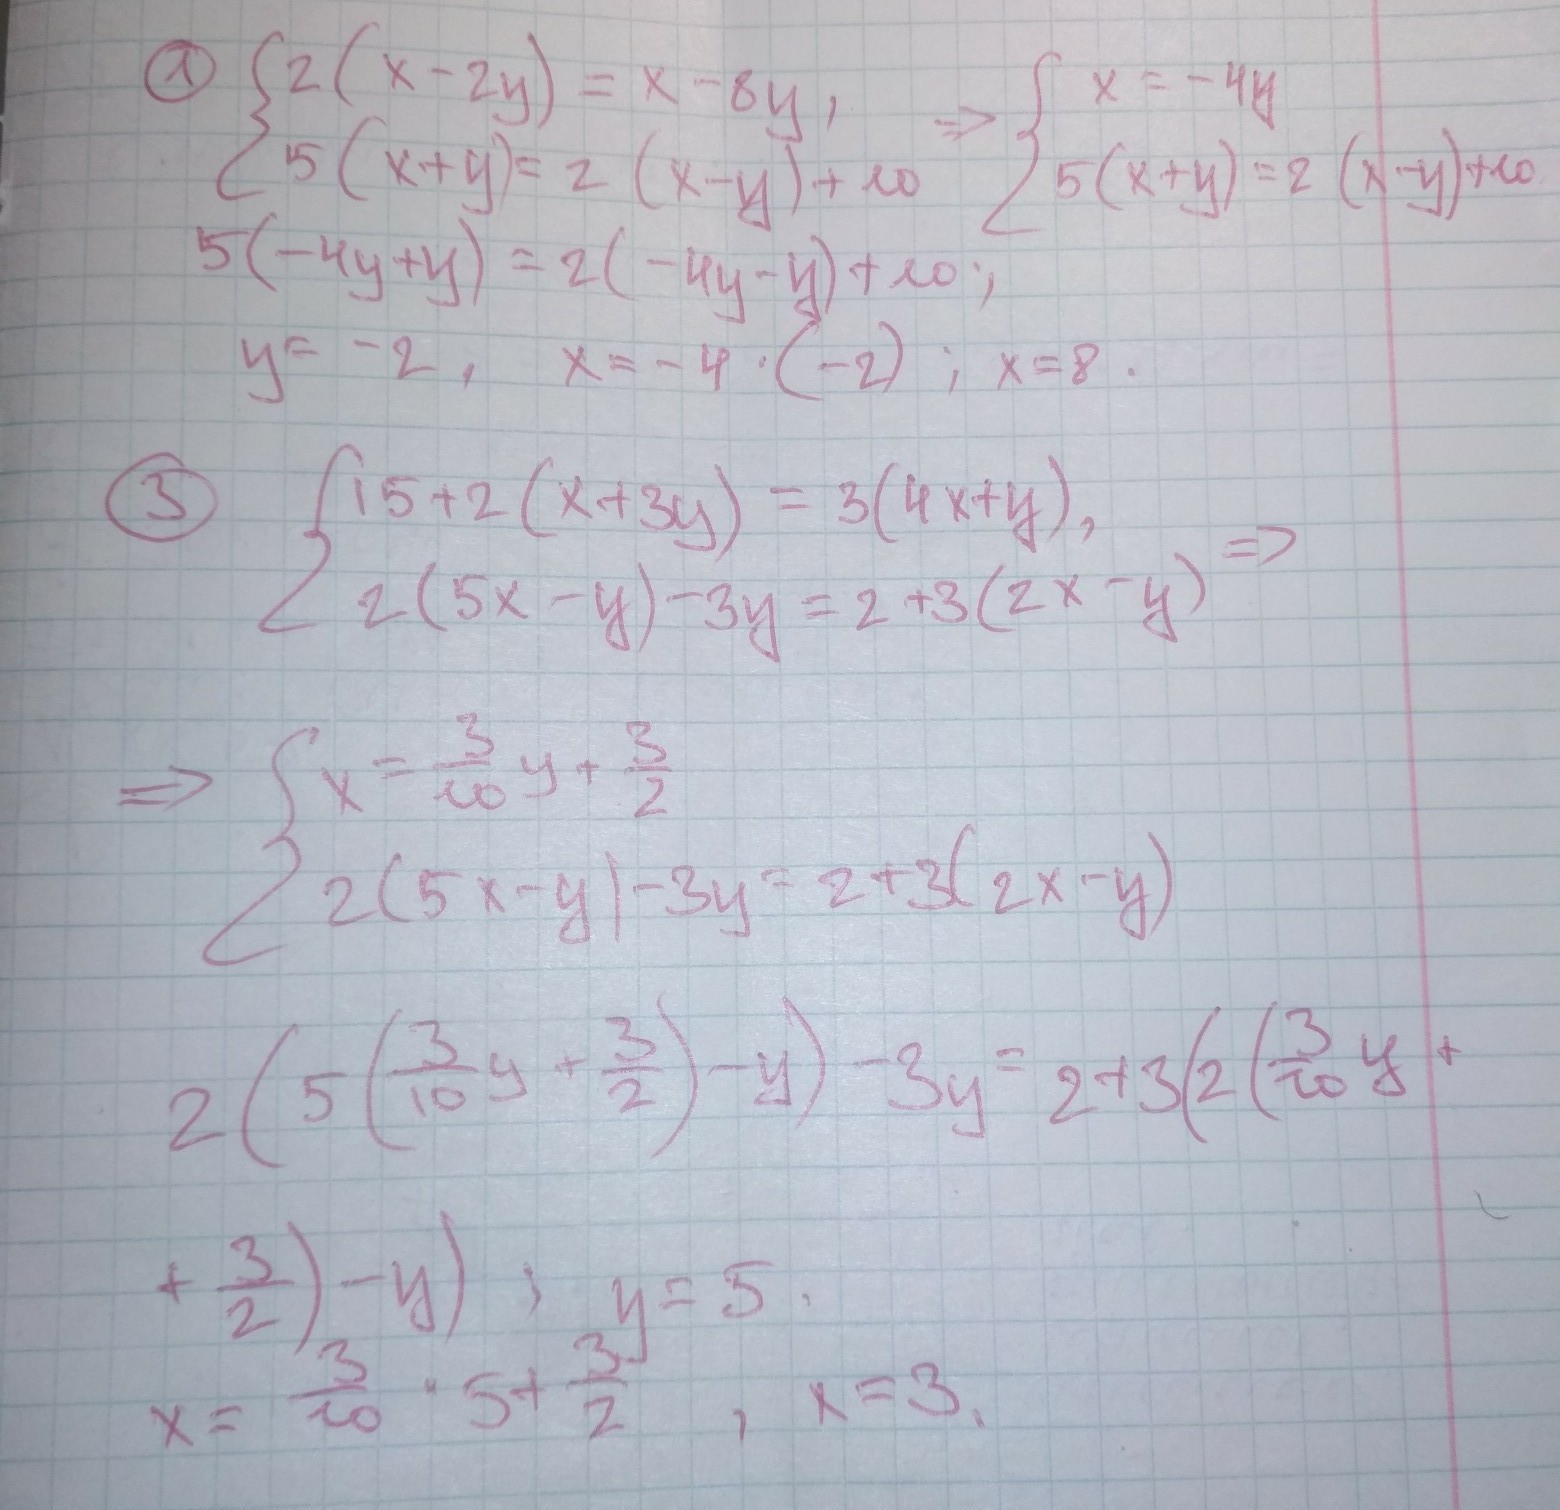 ① { 2(x-2y) = x-8y, ⇒ { x = -4y
5(x+y) = 2(x-y)+10 5(x+y) = 2(x-y)+10
5(-4y+y) = 2(-4y-y)+10;
y = -2, x = -4·(-2); x=8.
③ { 15+2(x+3y) = 3(4x+y),
2(5x-y)-3y = 2+3(2x-y) ⇒
⇒ { x = 3/10 y + 3/2
2(5x-y)-3y = 2+3(2x-y)
2(5(3/10 y + 3/2)-y)-3y = 2+3(2(3/10 y +
+ 3/2)-y); y = 5.
x = 3/10 · 5 + 3/2, x = 3.